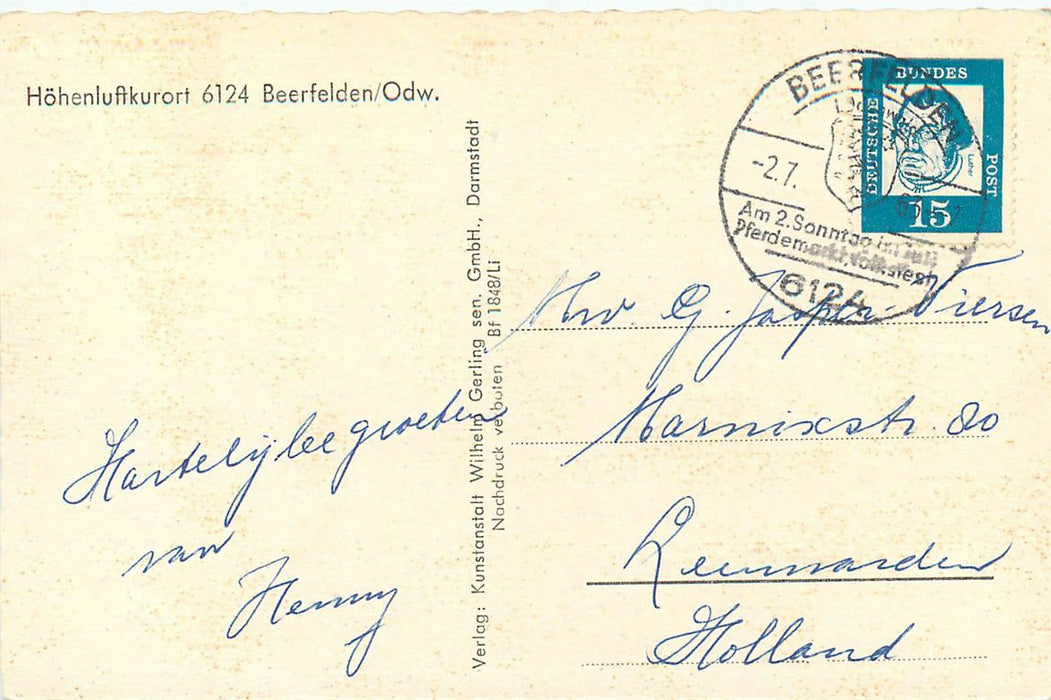 Höhenluftkurort 6124 Beerfelden/Odw.
Hartelijke groeten
van
Henny
Verlag: Kunstanstalt Wilhelm Gerling sen. GmbH., Darmstadt
Nachdruck verboten Bf 1848/Li
BEERFELDEN
-2.7.
Am 2. Sonntag im Juli
Pferdemarkt, Volksfest
6124
DEUTSCHE
BUNDES
POST
Luther
15
Mw. G. Jasper-Viersen
Marnixstr. 80
Leeuwarden
Holland